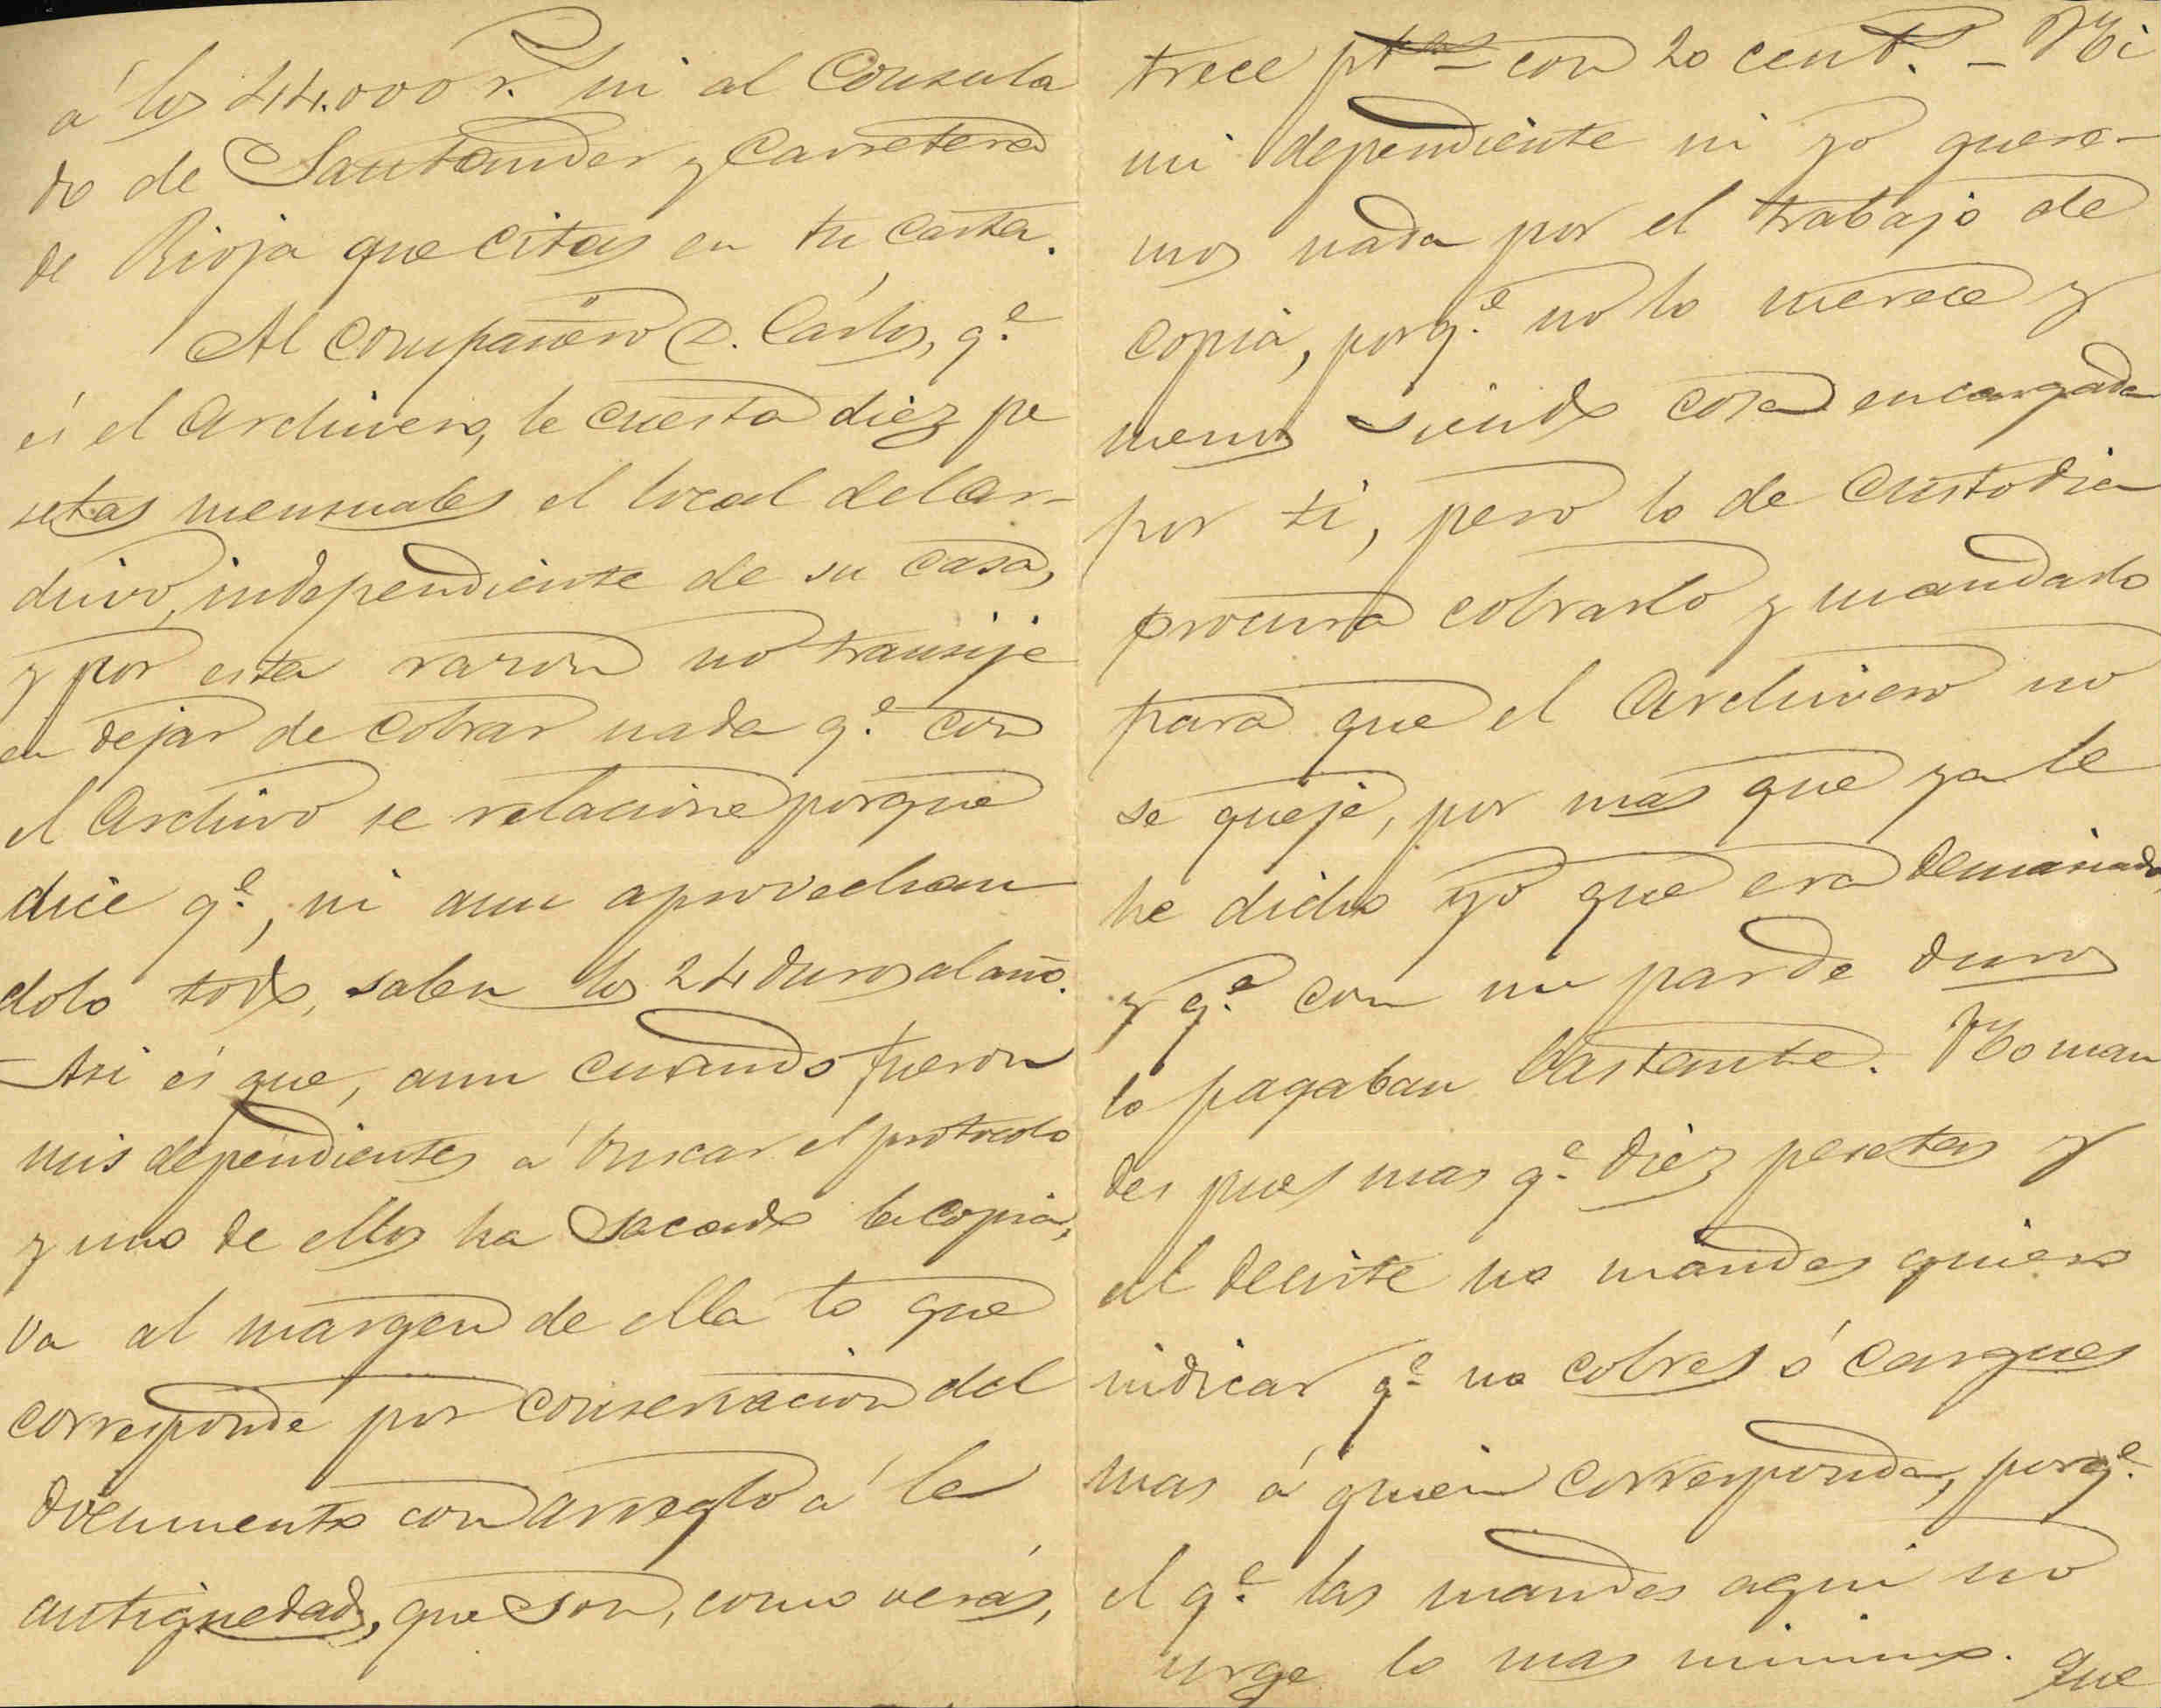 á los 44.000 r. ni al Consula
do de Santander y Carretera
de Rioja que citas en tu carta.
Al compañero D. Cárlos, q.e
és el Archivero, le cuesta diez pe
setas mensuales el local del Ar-
chivo, independiente de su casa,
y por esta razon no transije
en dejar de cobrar nada q.e con
el Archivo se relacione porque
dice q.e, ni aun aprovechan
dolo todo, salen los 24 duros al año.
Asi és que, aun cuando fueron
mis dependientes á buscar el protocolo
y uno de ellos ha sacado la copia,
va al margen de ella lo que
corresponde por conservacion del
documento con arreglo á la
antiguedad, que son, como verás,
trece ptas con 20 cent.s - Ni
mi dependiente ni yo quere-
mos nada por el trabajo de
copia, porq.e no lo merece y
menos siendo cosa encargada
por ti, pero lo de custodia
procura cobrarlo y mandarlo
para que el Archivero no
se queje, por mas que ya le
he dicho yo que era demasiado,
y q.e con un par de duros
lo pagaban bastante. No man
des pues mas q.e diez pesetas y
al decirte no mandes quiero
indicar q.e no cobres ó cargues
mas á quien corresponda, porq.e
el q.e las mandes aqui no
urge lo mas minimo. Que